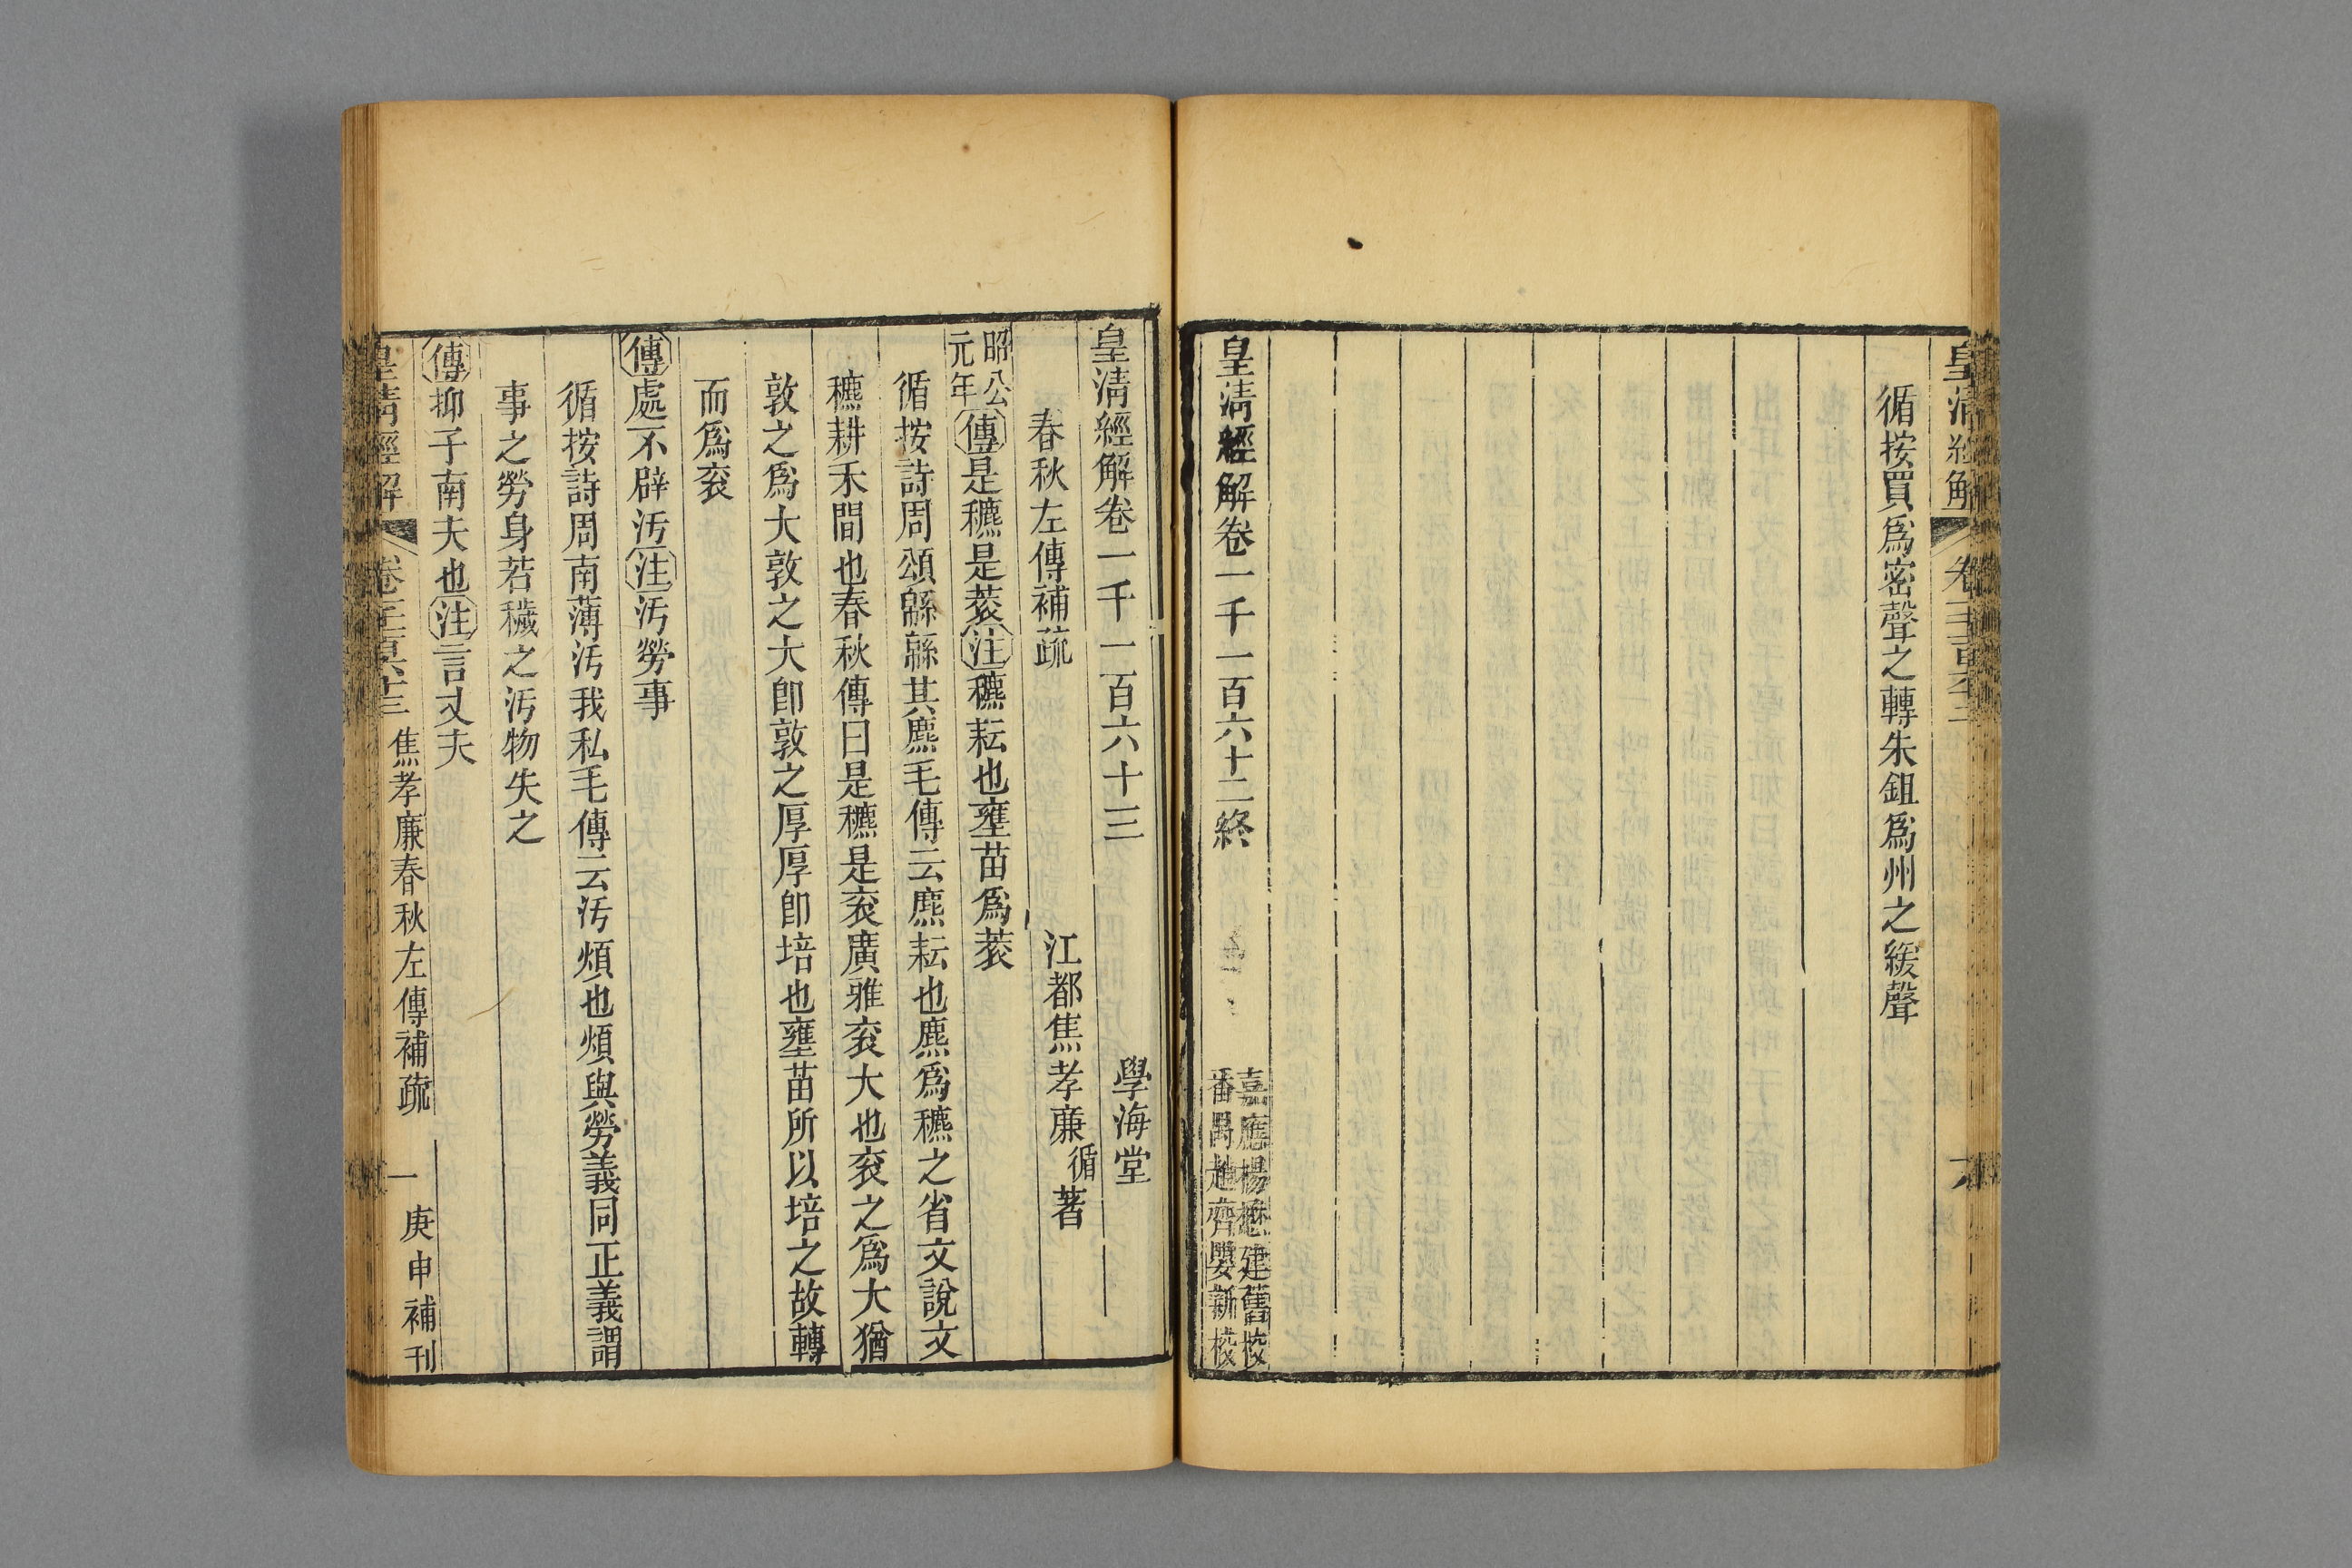 皇清經解
循按買爲密聲之轉朱鉏爲州之緩聲
皇清經解卷一千一百六十二終
嘉應楊懋建舊校
番禺趙齊嬰新校
皇清經解卷一千一百六十三 學海堂
春秋左傳補疏 江都焦孝廉循著
昭公元年傳是穮是蔉注穮耘也壅苗爲蔉
循按詩周頌緜緜其麃毛傳云麃耘也麃爲穮之省文說文
穮耕禾間也春秋傳曰是穮是衮廣雅衮大也衮之爲大猶
敦之爲大敦之大卽敦之厚厚卽培也壅苗所以培之故轉
而爲衮
傳處不辟汚注汚勞事
循按詩周南薄汚我私毛傳云汚煩也煩與勞義同正義謂
事之勞身若穢之汚物失之
傳抑子南夫也注言丈夫
皇清經解 卷一千一百六十三 焦孝廉春秋左傳補疏 一 庚申補刊